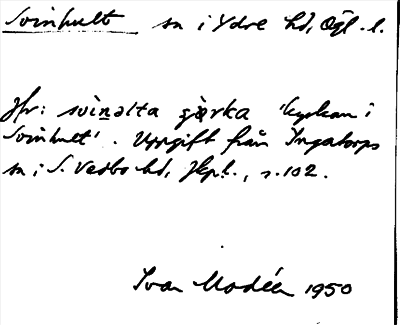 Svinhult sn i Ydre hd, Ögl. l.
Jfr: svinalta şörka 'kyrkan i
Svinhult'. Uppgift från Ingatorps
sn i S. Vedbo hd, Jkpl., s. 102.
Ivar Modéer 1950